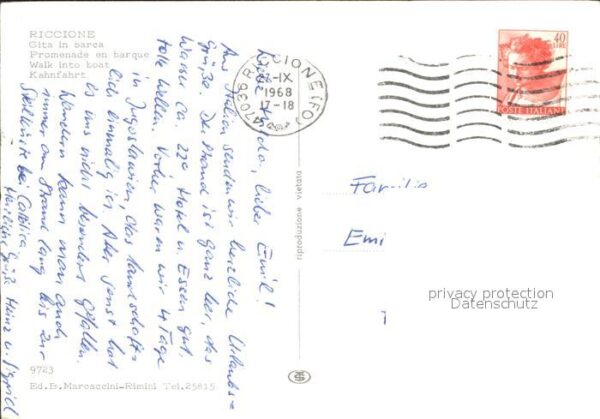 RICCIONE
Gita in barca
Promenade en barque
Walk into boat
Kahnfahrt
47036 RICCIONE (FO)
-IX
1968
17-18
40
LIRE
POSTE ITALIANE
lieber Emil!
Aus Italien senden wir herzliche Urlaubs-
grüße. Der Strand ist ganz leer, das
Wasser ca. 22° Hotel u. Essen gut,
tolle Wellen. Vorher waren wir 4 Tage
in Jugoslawien, das landschaft-
lich einmalig ist. Aber sonst hat
es uns nicht besonders gefallen.
Wandern kann man auch
immer am Strand lang bis zur
Steilküste bei Catolica
Herzliche Grüße Heinz u. Sigrid
riproduzione vietata
Familie
Emi
privacy protection
Datenschutz
9723
Ed.B.Marcaccini-Rimini Tel.25815